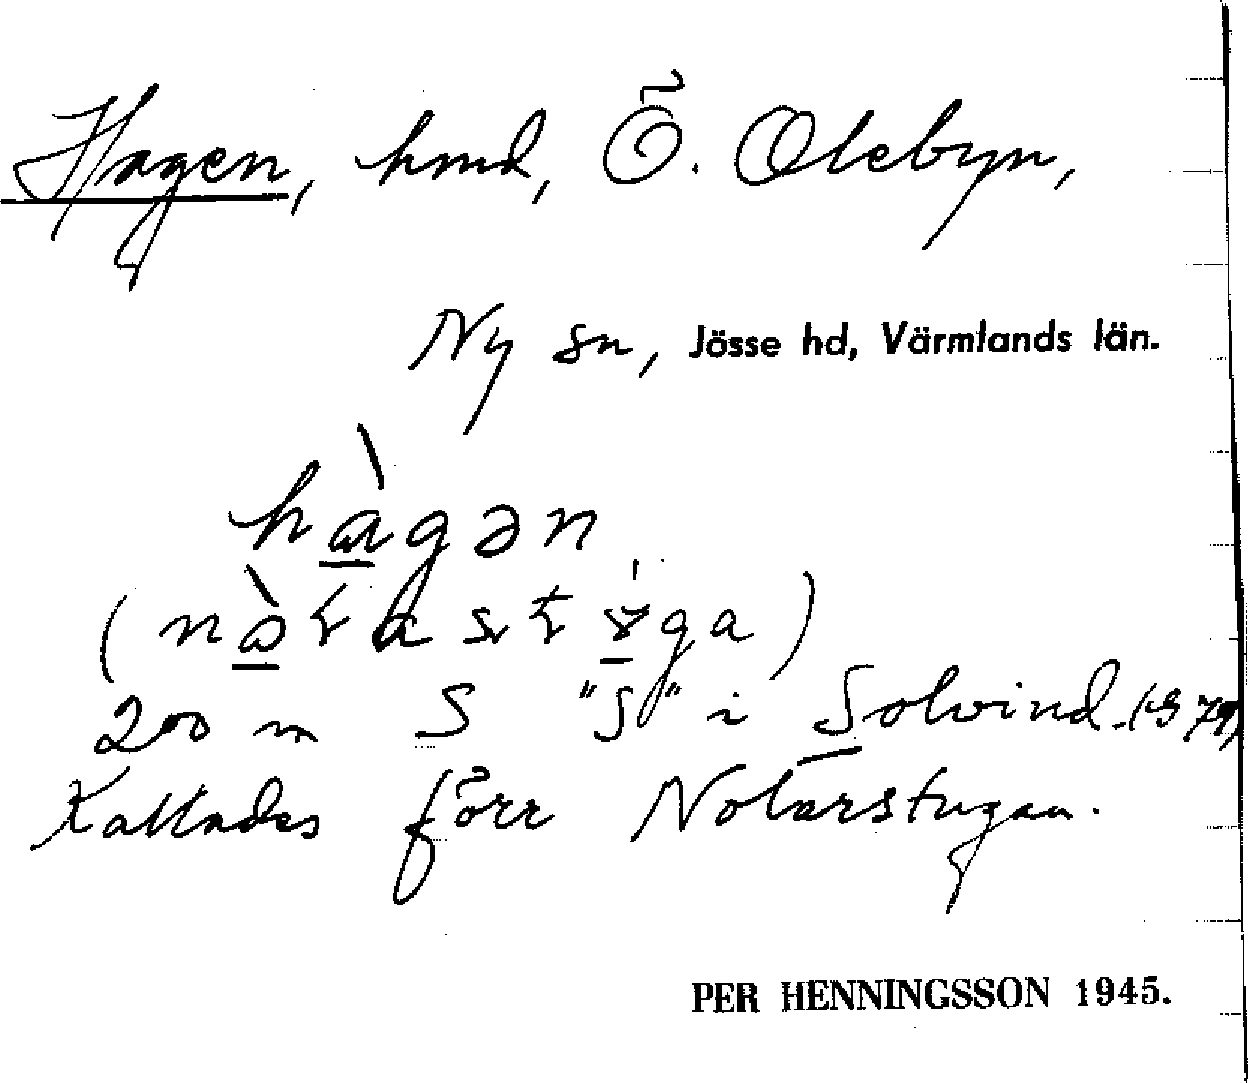 Hagen, hmd, Ö. Olebyn,
Ny sn, Jösse hd, Värmlands län.
hàgən
200 m S "S" i Solvind.
Kallades förr Nolærstugan.
PER HENNINGSSON 1945.